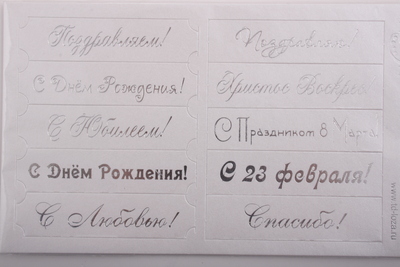 Поздравляем!
С Днём Рождения!
С Юбилеем!
С Днём Рождения!
С Любовью!
Поздравляем!
Христос Воскрес
С Праздником 8 Марта
С 23 февраля!
Спасибо!